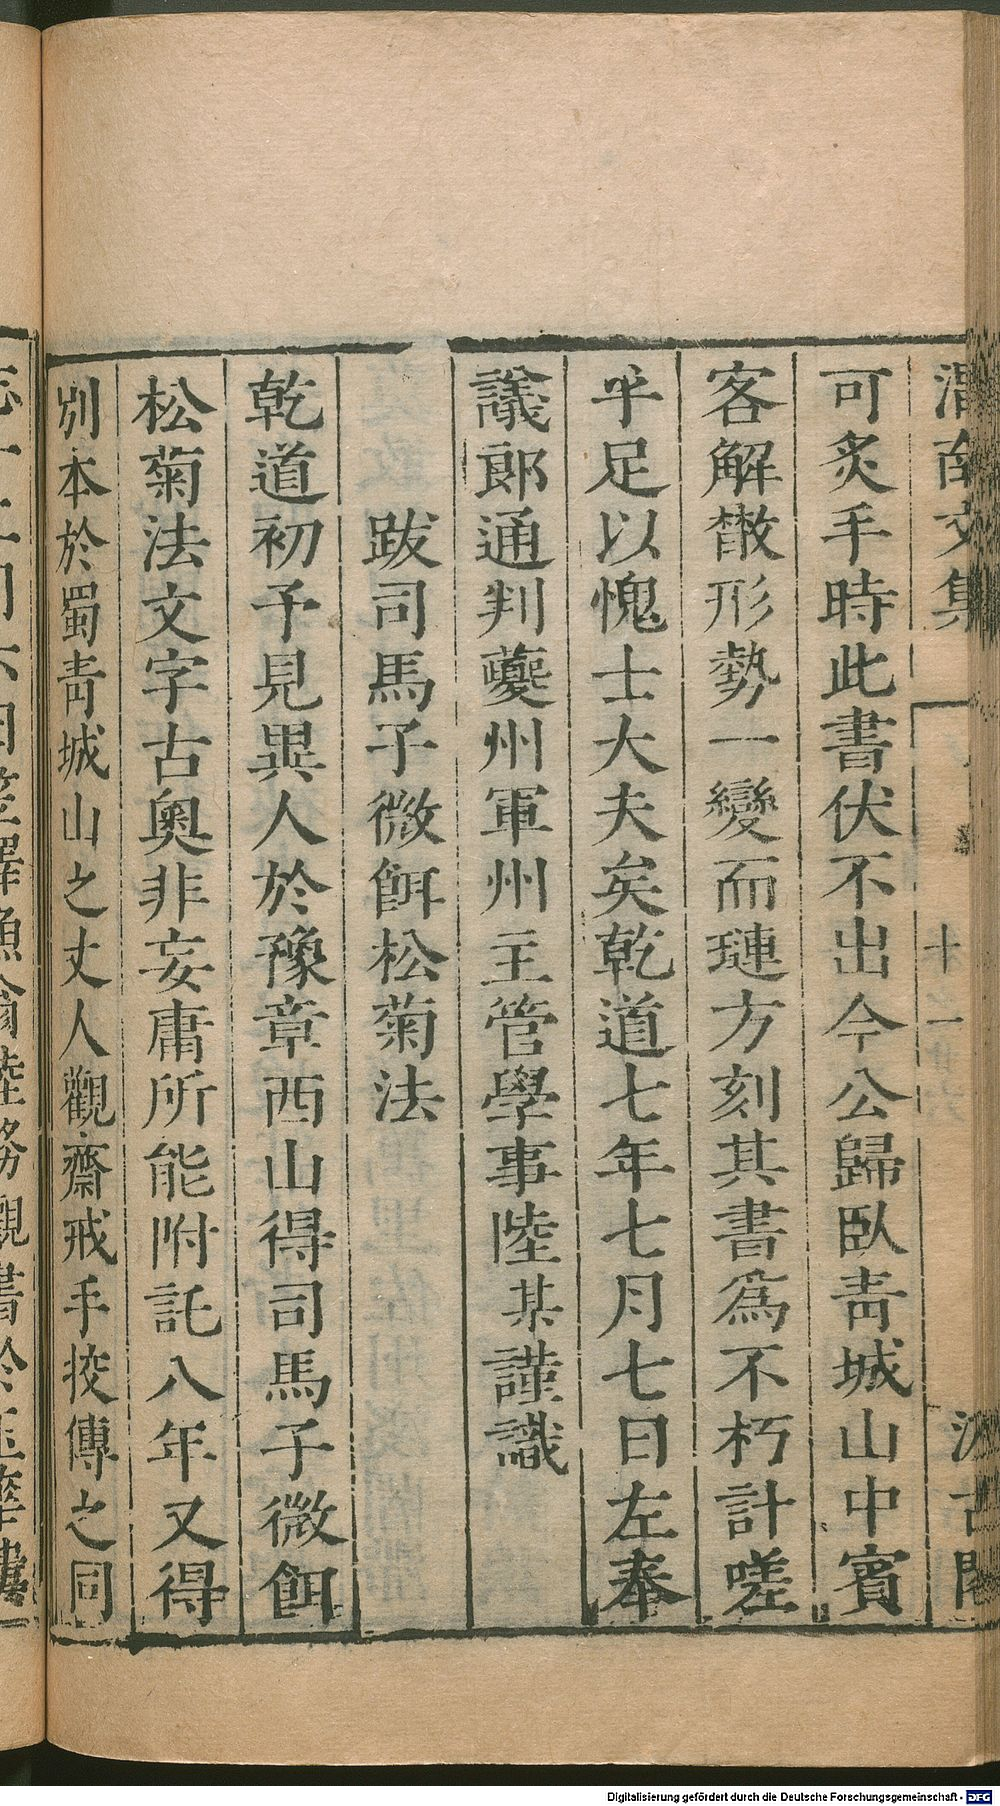 渭南文集
十一
汲古閣
可炙手時此書伏不出今公歸臥青城山中賓
客解散形勢一變而璉方刻其書爲不朽計嗟
乎足以愧士大夫矣乾道七年七月七日左奉
議郎通判夔州軍州主管學事陸某謹識
跋司馬子微餌松菊法
乾道初予見異人於豫章西山得司馬子微餌
松菊法文字古奧非妄庸所能附託八年又得
別本於蜀青城山之丈人觀齋戒手挍傳之同
志十二月六日笠澤漁翁陸務觀書於玉華樓
Digitalisierung gefördert durch die Deutsche Forschungsgemeinschaft - DFG